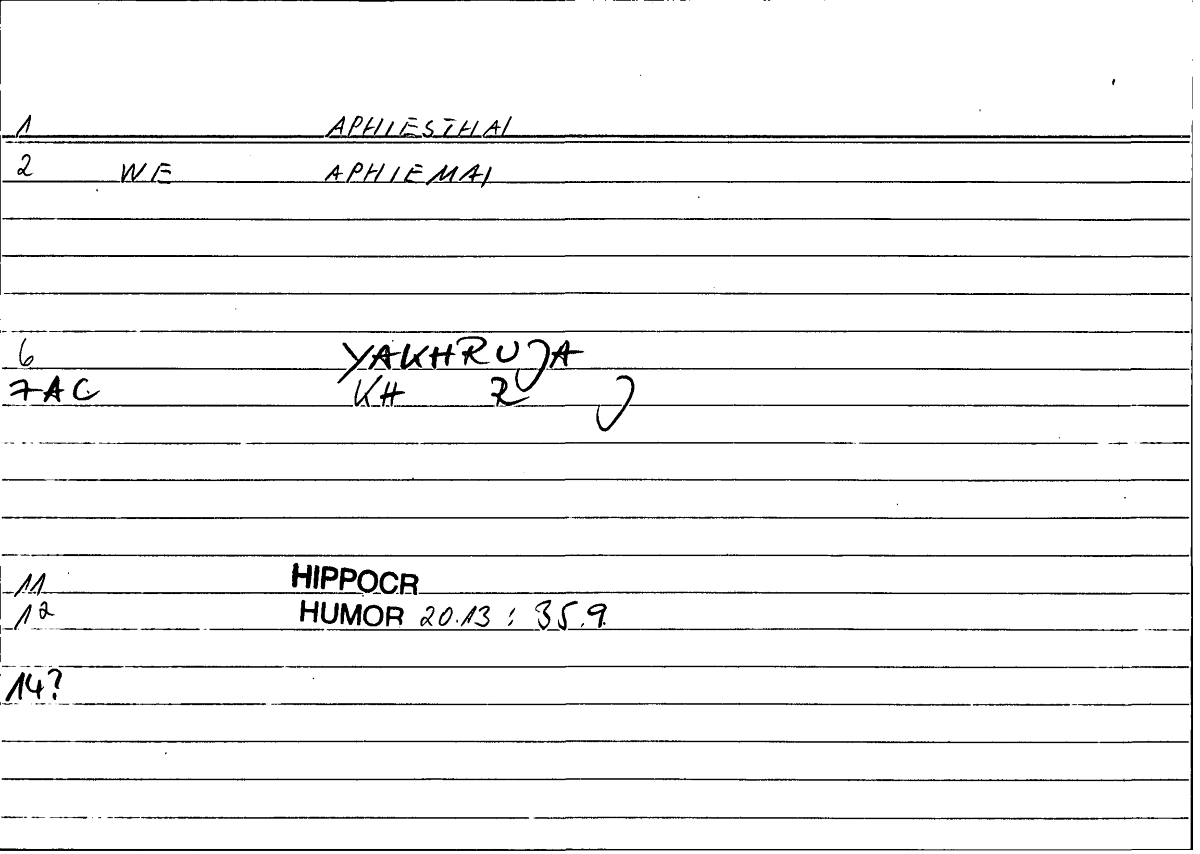 1 APHIESTHAI
2 WE APHIEMAI
6 YAKHRUJA
7AC KH R J
11 HIPPOCR
12 HUMOR 20.13 : 35.9.
14?